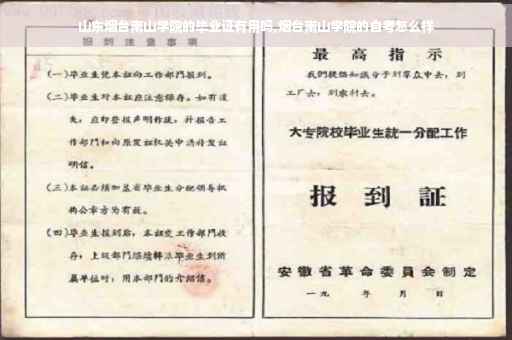 山东烟台南山学院的毕业证有用吗,烟台南山学院的自考怎么样
报到注意事项
(一)毕业生凭本证向工作部门报到。
(二)毕业生对本证应注意保存。如有遗
失,应即登报声明作废,并报告工
作部门和向原发证机关申请补发证
明信。
(三)本证必须加盖省毕业生分配领导机
构公章方为有效。
(四)毕业生报到后,本证交工作部门收
存;上级部门继续转派毕业生到所
属单位时,用本部门的介绍信。
最高指示
我们提倡知识分子到群众中去,到
工厂去,到农村去。
大专院校毕业生统一分配工作
报到証
安徽省革命委員会制定
一九 年 月 日